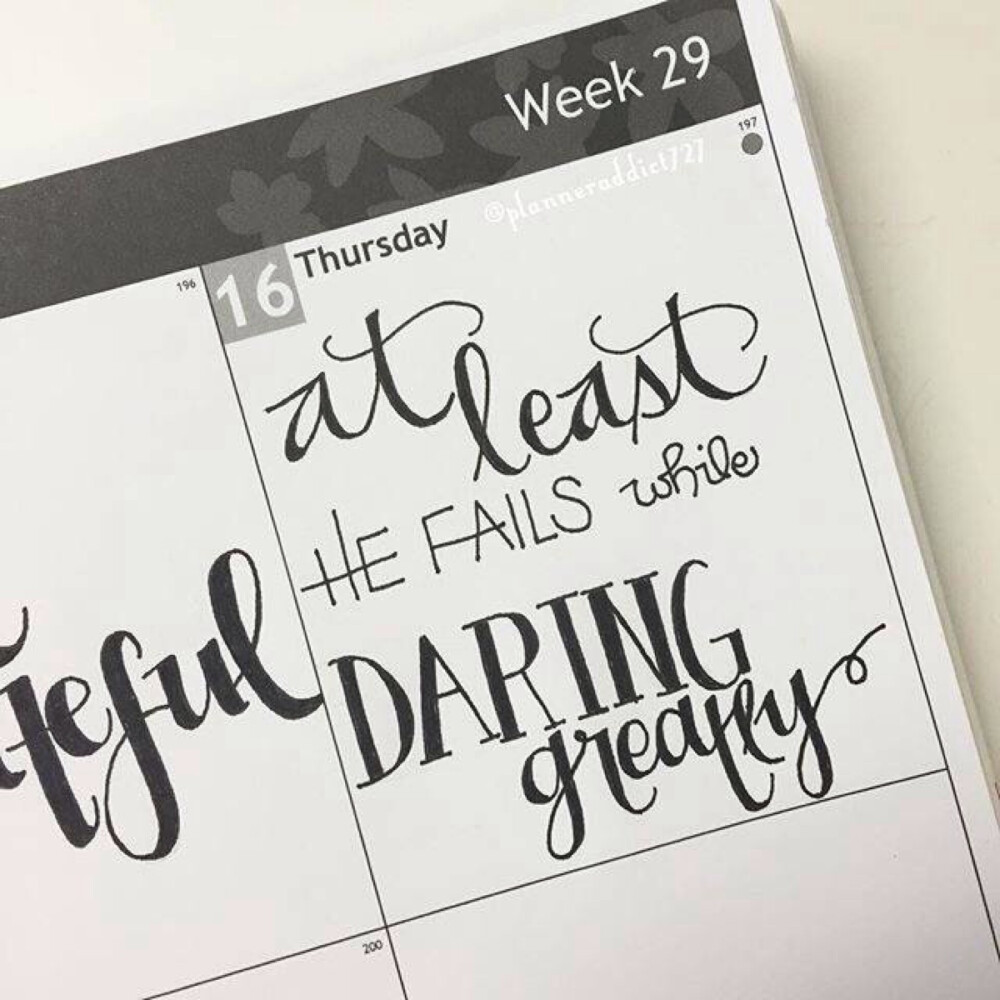 Week 29
197
@planneraddict727
196
16 Thursday
at least
HE FAILS while
DARING
greatly
200